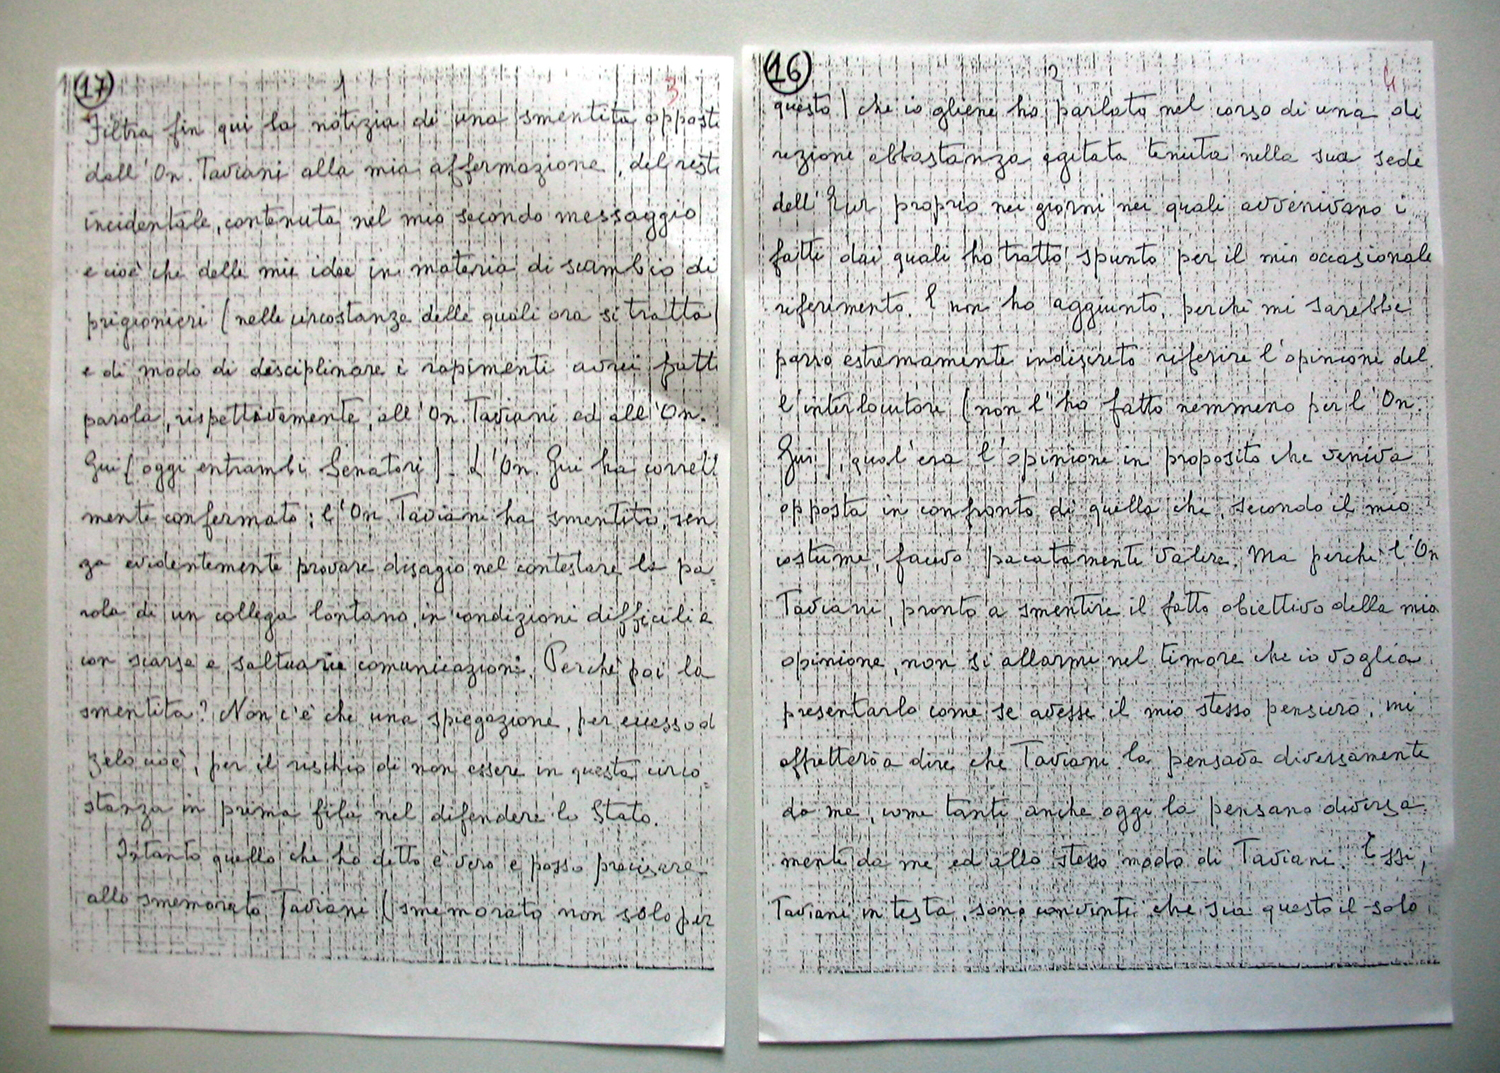 17
1
3
Filtra fin qui la notizia di una smentita opposta
dall'On. Taviani alla mia affermazione, del resto
incidentale, contenuta nel mio secondo messaggio
e cioè che delle mie idee in materia di scambio di
prigionieri (nelle circostanze delle quali ora si tratta)
e di modo di disciplinare i rapimenti avrei fatto
parola, rispettivamente, all'On. Taviani ed all'On.
Gui (oggi entrambi Senatori). L'On. Gui ha corretta
mente confermato; l'On. Taviani ha smentito, sen
za evidentemente provare disagio nel contestare la pa
rola di un collega lontano, in condizioni difficili e
con scarse e saltuarie comunicazioni. Perchè poi la
smentita? Non c'è che una spiegazione, per eccesso d
zelo cioè, per il rischio di non essere in questa circo
stanza in prima fila nel difendere lo Stato.
Intanto quello che ho detto è vero e posso precisare
allo smemorato Taviani (smemorato non solo per
16
2
4
questo) che io gliene ho parlato nel corso di una di
rezione abbastanza agitata tenuta nella sua sede
dell'Eur proprio nei giorni nei quali avvenivano i
fatti dai quali ho tratto spunto per il mio occasionale
riferimento. E non ho aggiunto, perchè mi sarebbe
parso estremamente indiscreto riferire l'opinione del
l'interlocutore (non l'ho fatto nemmeno per l'On.
Gui), qual'era l'opinione in proposito che veniva
opposta in confronto di quella che, secondo il mio
costume, facevo pacatamente valere. Ma perchè l'On
Taviani, pronto a smentire il fatto obiettivo della mia
opinione, non si allarmi nel timore che io voglia
presentarlo come se avesse il mio stesso pensiero, mi
affretterò a dire che Taviani la pensava diversamente
da me, come tanti anche oggi la pensano diversa
mente da me ed allo stesso modo di Taviani. Essi,
Taviani in testa, sono convinti che sia questo il solo